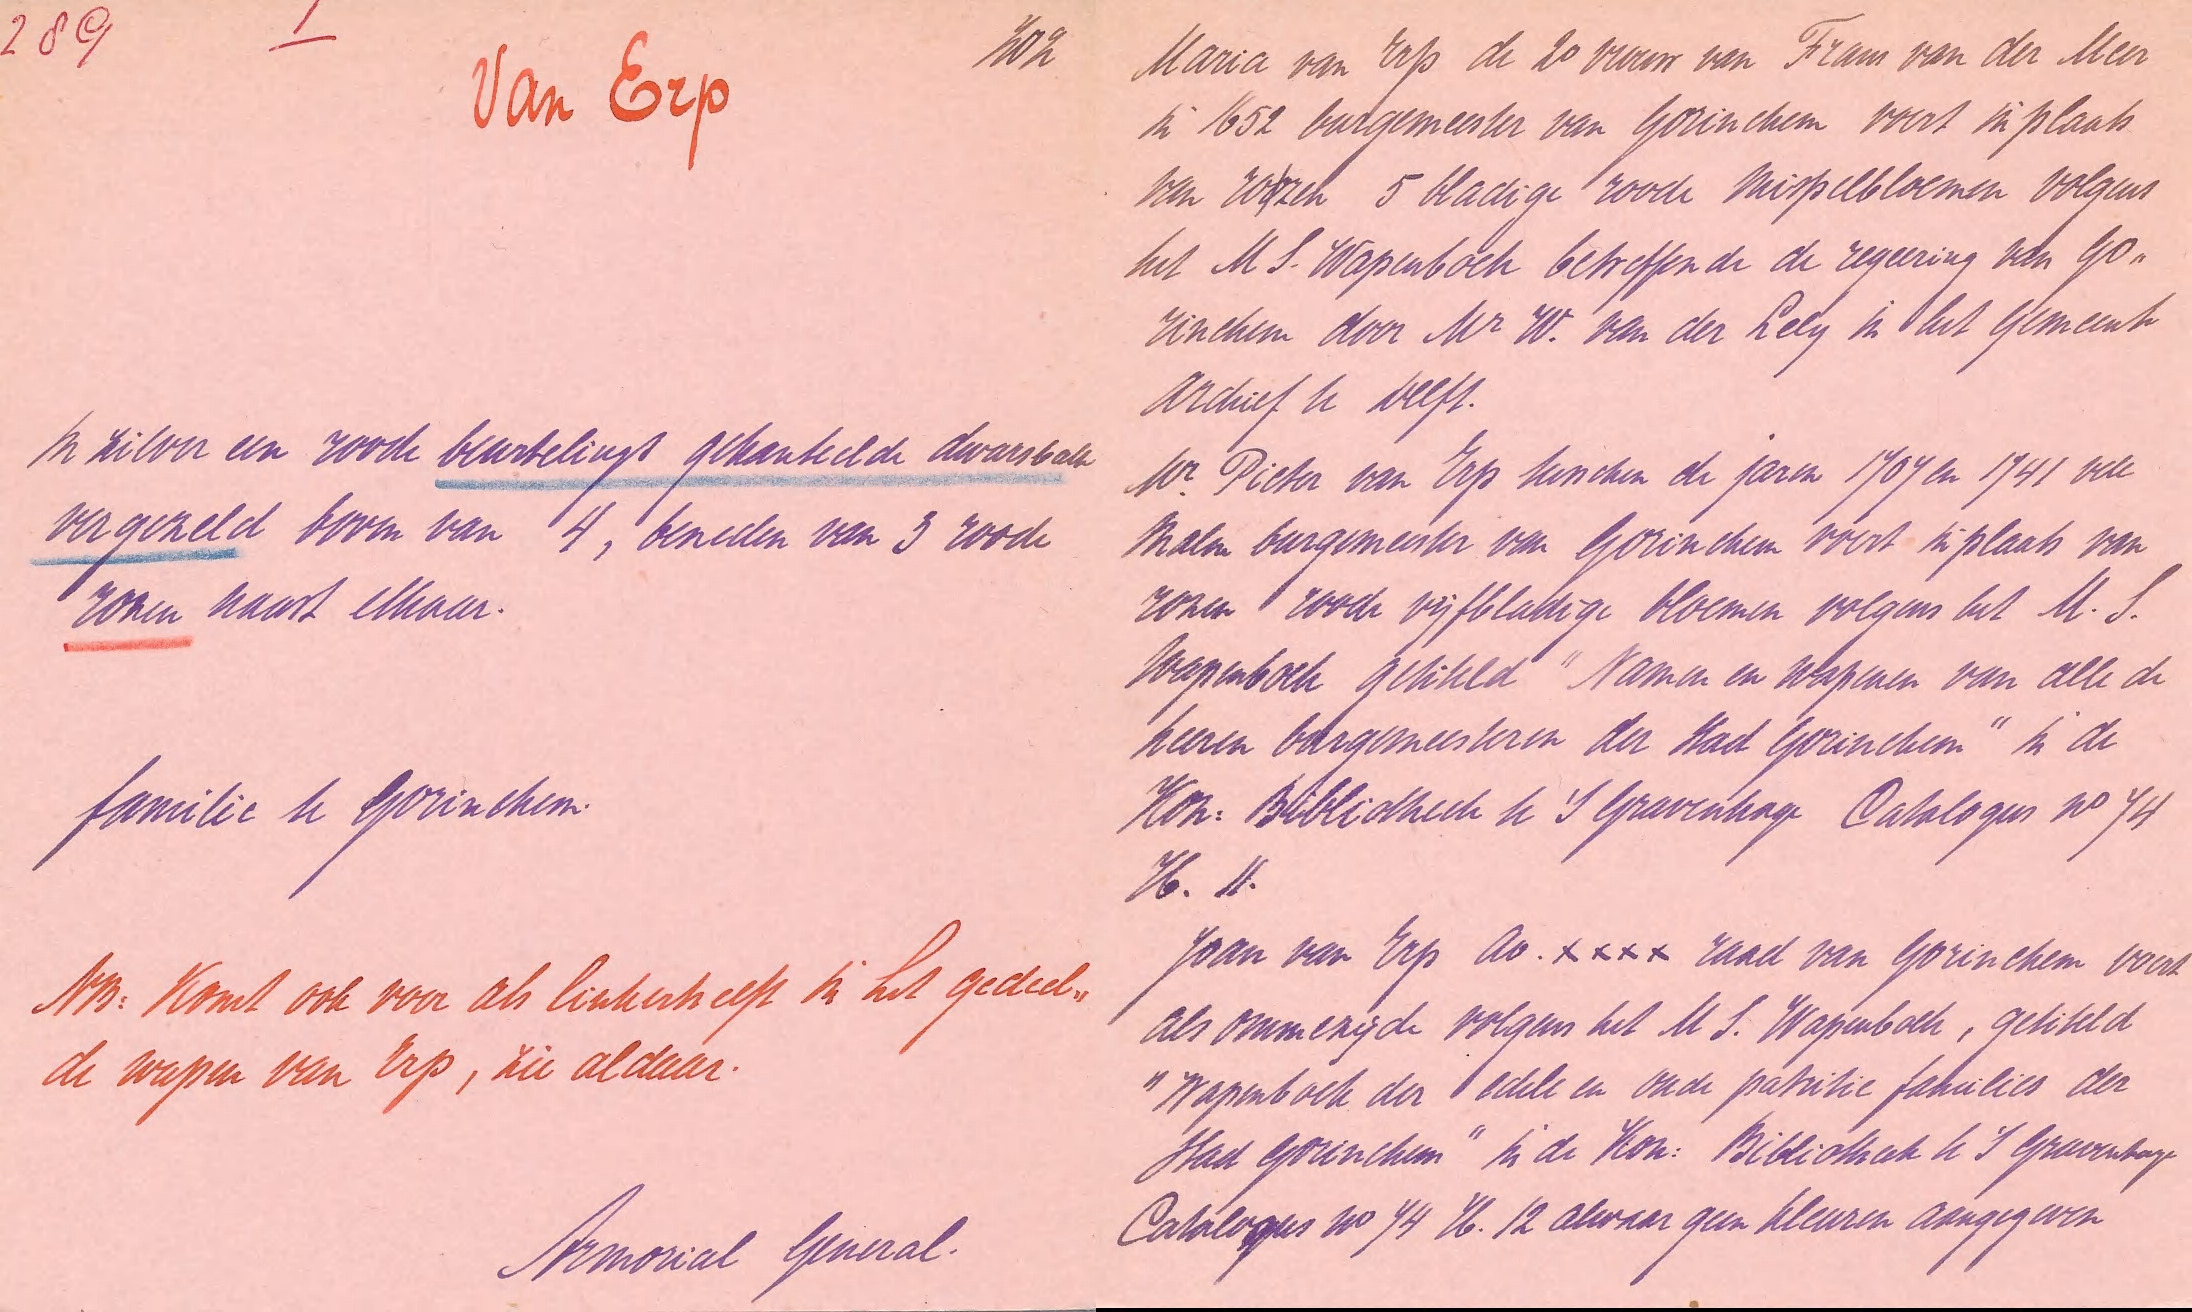 289
1
202
Van Erp
In zilver een roode beurtelings gekanteelde dwarsbalk
vergezeld boven van 4, beneden van 3 roode
rozen naast elkaar.
familie te Gorinchem.
NB: Komt ook voor als linkerhelft in het gedeel„
de wapen van Erp, zie aldaar.
Armorial General.
Maria van Erp de 2e vrouw van Frans van der Meer
in 1652 burgemeester van Gorinchem voert in plaats
van rozen 5 bladige roode mispelbloemen volgens
het M S. Wapenboek betreffende de regeering van Go„
rinchem door Mr W. van der Lely in het Gemeente
Archief te Delft.
Mr. Pieter van Erp tusschen de jaren 1707 en 1741 vele
malen burgemeester van Gorinchem voert in plaats van
rozen roode vijfbladige bloemen volgens het M. S.
Wapenboek getiteld "Namen en wapenen van alle de
heeren burgemeesteren der stad Gorinchem" in de
Kon: Bibliotheek te 'S Gravenhage Catalogus no 74
H. 11.
Joan van Erp Ao. xxxx raad van Gorinchem voert
als ommezijde volgens het M S. Wapenboek, getiteld
"Wapenboek der edele en oude patritie families der
stad Gorinchem" in de Kon: Bibliotheek te 'S Gravenhage
Catalogus no 74 H. 12 alwaar geen kleuren aangegeven